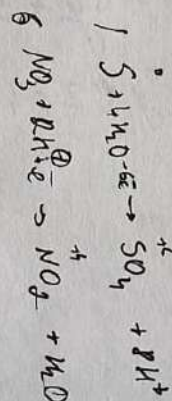 1 S⁰ + 4H₂O -6e̅ → S⁺⁶O₄ + 8H⁺
6 NO₃ + 2H⁺ + e̅ → N⁺⁴O₂ + H₂O